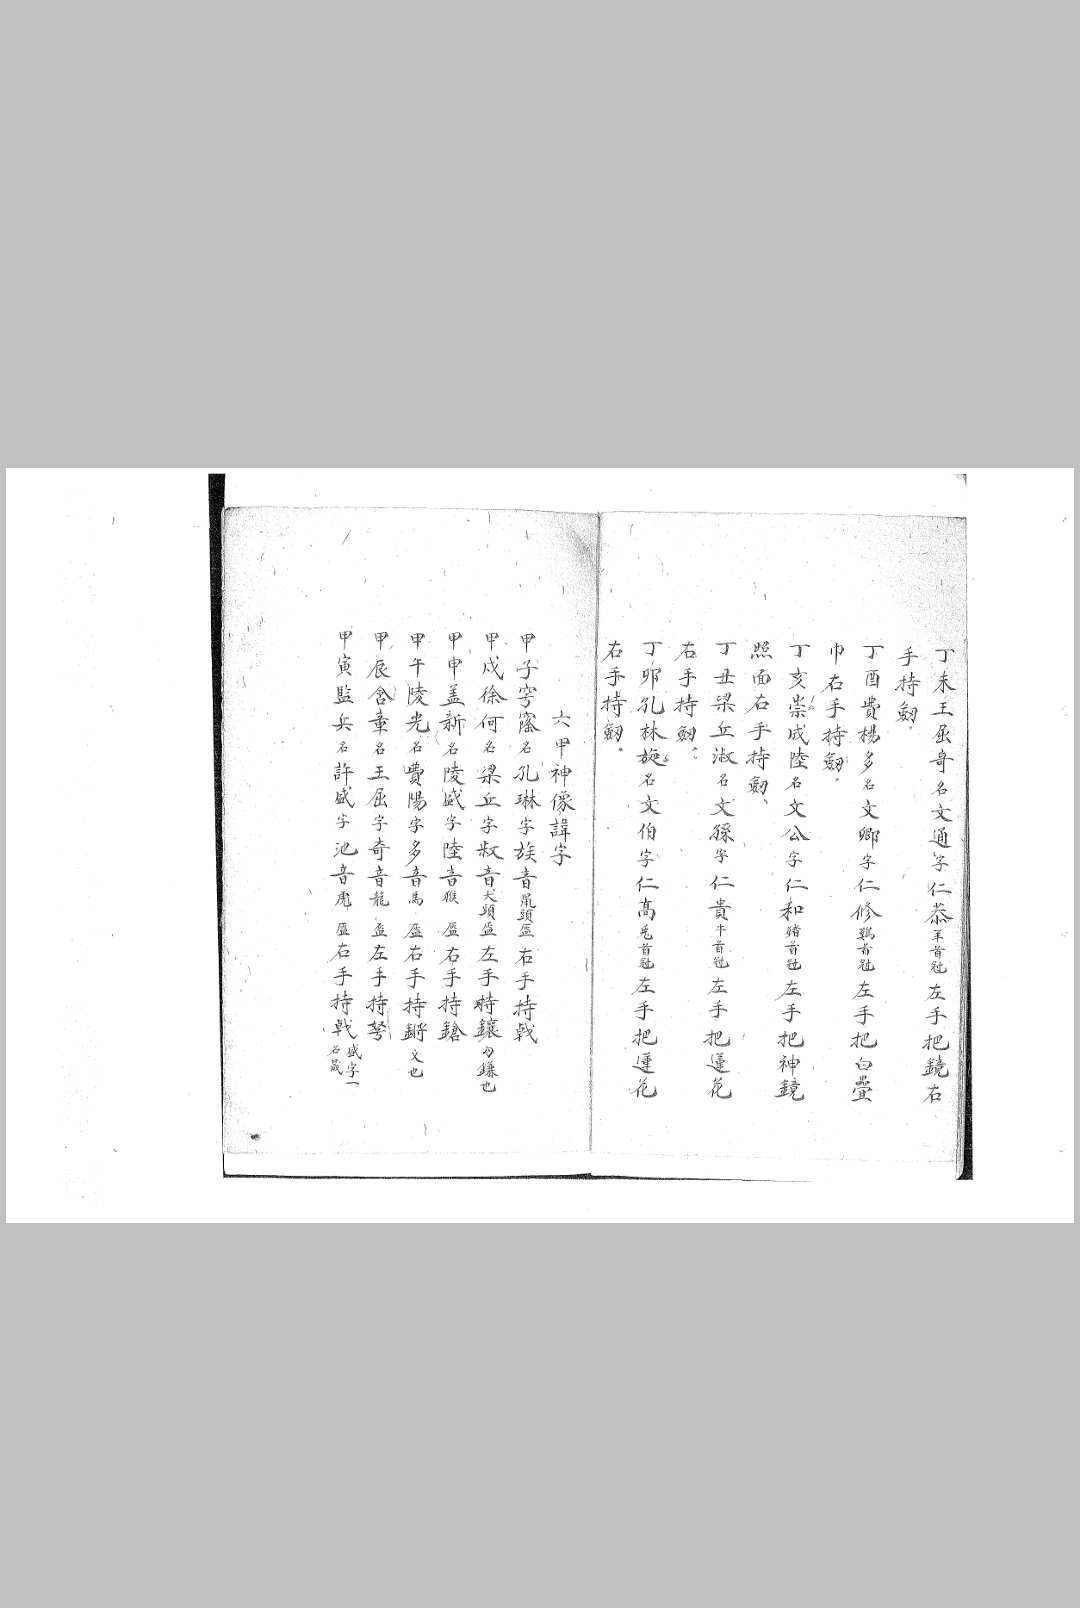 丁未王屈奇名文通字仁恭羊首冠左手把鏡右
手持劔。
丁酉費楊多名文卿字仁修鷄首冠左手把白疊
巾右手持劔。
丁亥崇成陸名文公字仁和猪首冠左手把神鏡
照面右手持劔、
丁丑梁丘淑名文孫字仁貴牛首冠左手把蓮花
右手持劔。
丁卯孔林旋名文伯字仁高兎首冠左手把蓮花
右手持劔。
六甲神像諱字
甲子窂窿名孔琳字族音鼠頭 右手持戟
甲戌徐何名梁丘字叔音犬頭 左手持鑲勾鎌也
甲申盖新名陵盛字陸音猴 右手持鎗
甲午陵光名費陽字多音馬 右手持 也
甲辰含章名王屈字奇音龍 左手持弩
甲寅監兵名許盛字池音虎 右手持戟盛字一名